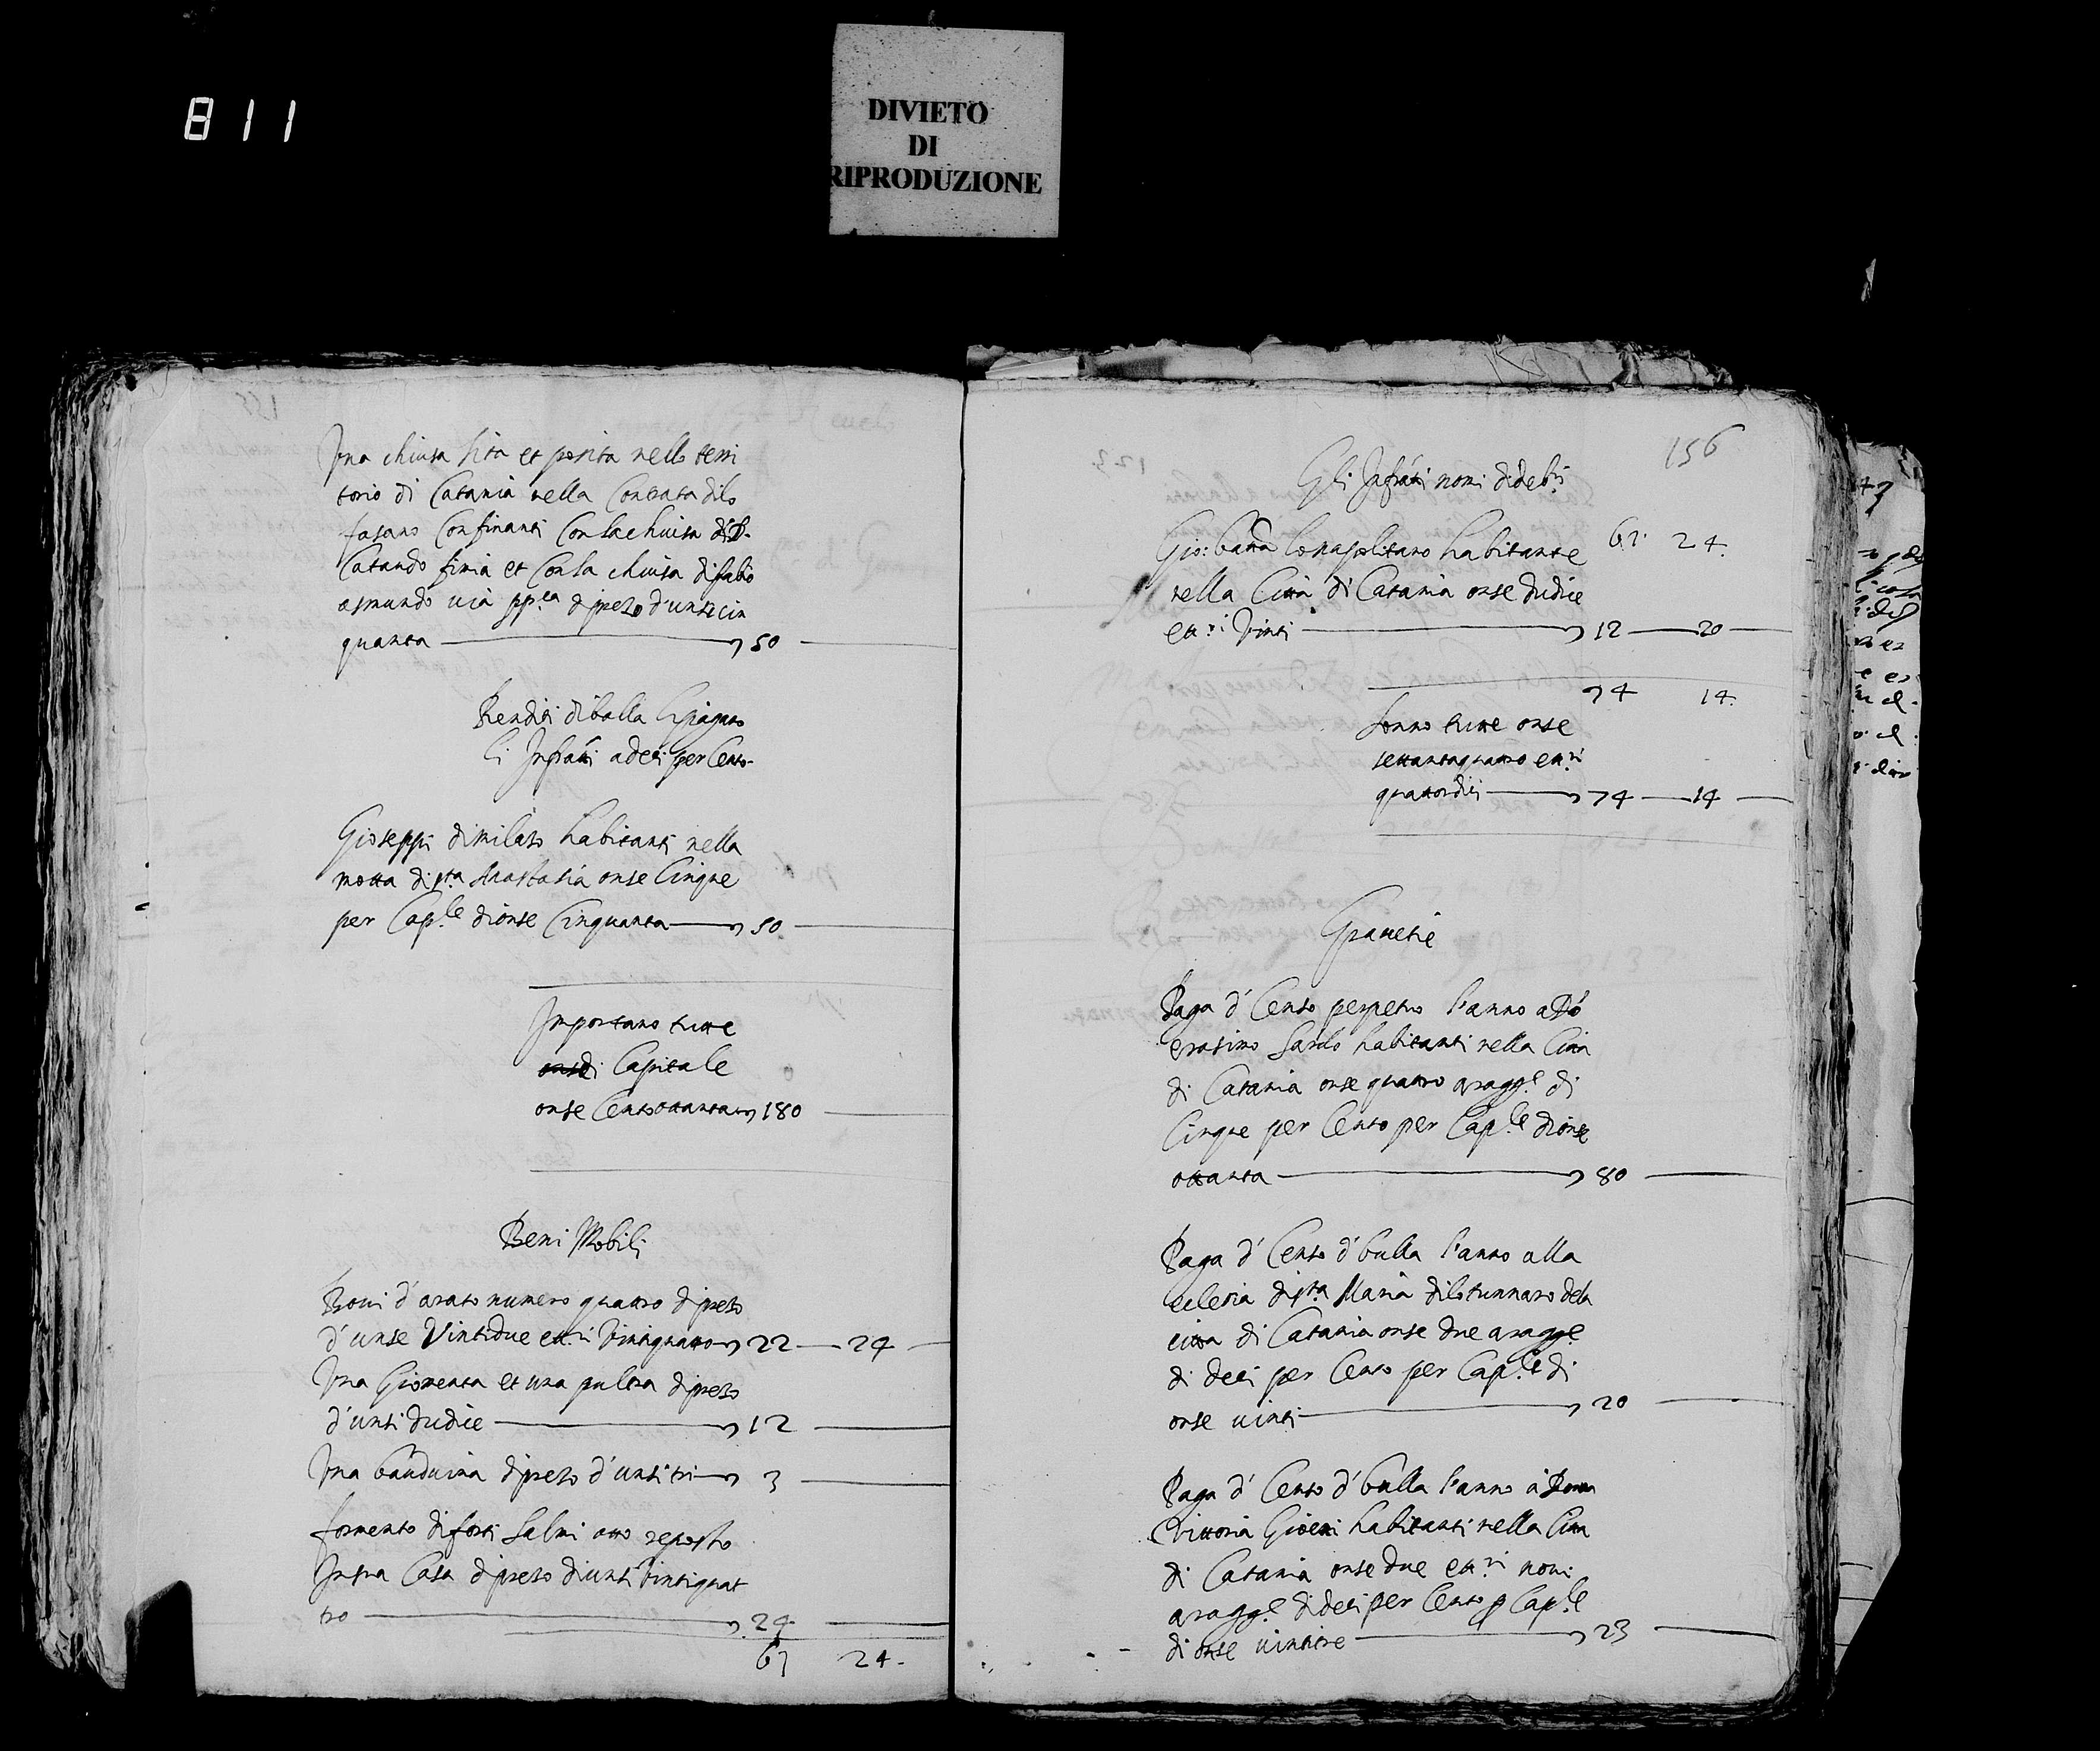 811
DIVIETO
DI
RIPRODUZIONE
Una chiusa sita et posita nello terri
torio di Catania nella Contrata dilo
fasano Confinanti Con la chiusa di
Catando finia et Con la chiusa di fabio
asmundo via pp.ca di prezo d'unzi cin
quanta 50
Renditi di bulla
li Infratti a deci per Cento
Gioseppi di milazo habitanti nella
motta di s.ta Anastasia onse Cinque
per Cap.le di onse Cinquanta 50
Importano tutte
onse di Capitale
onse Cento ottanta 180
Beni Mobili
Bovi d'arato numero quatro di prezo
d'unse Vintidue et t.ri vintiquatro 22 24
Una Giomenta et una pultra di prezo
d'unsi dudice 12
Una bauduina di prezo d'unsi tri 3
formento di forti Salmi otto reposto
In sua Casa di prezo di unsi vintiquat
tro 24
61 24
156
Gli Infratti nomi di deb.ri
61 24
Gio: batta lo napolitano habitante
nella Citta di Catania onse dudice
et t.ri Vinti 12 20
74 14
Sonno tutte onse
settantaquatro et t.ri
quattordici 74 14
Gravetie
Paga d' Censo perpetuo l'anno a Don
erasimo Sardo habitanti nella Citta
di Catania onse quatro a ragg.e di
Cinque per Cento per Cap.le di onse
ottanta 80
Paga d' Censo d' bulla l'anno alla
eclesia di s.ta Maria dilo tunnaro dela
citta di Catania onse due a ragg.e
di deci per Cento per Cap.le di
onse vinti 20
Paga d' Censo d' bulla l'anno a Donna
Vittoria Gioeni habitanti nella Citta
di Catania onse due et t.ri novi
a ragg.e di deci per Cento p Cap.le
di onse vintitre 23